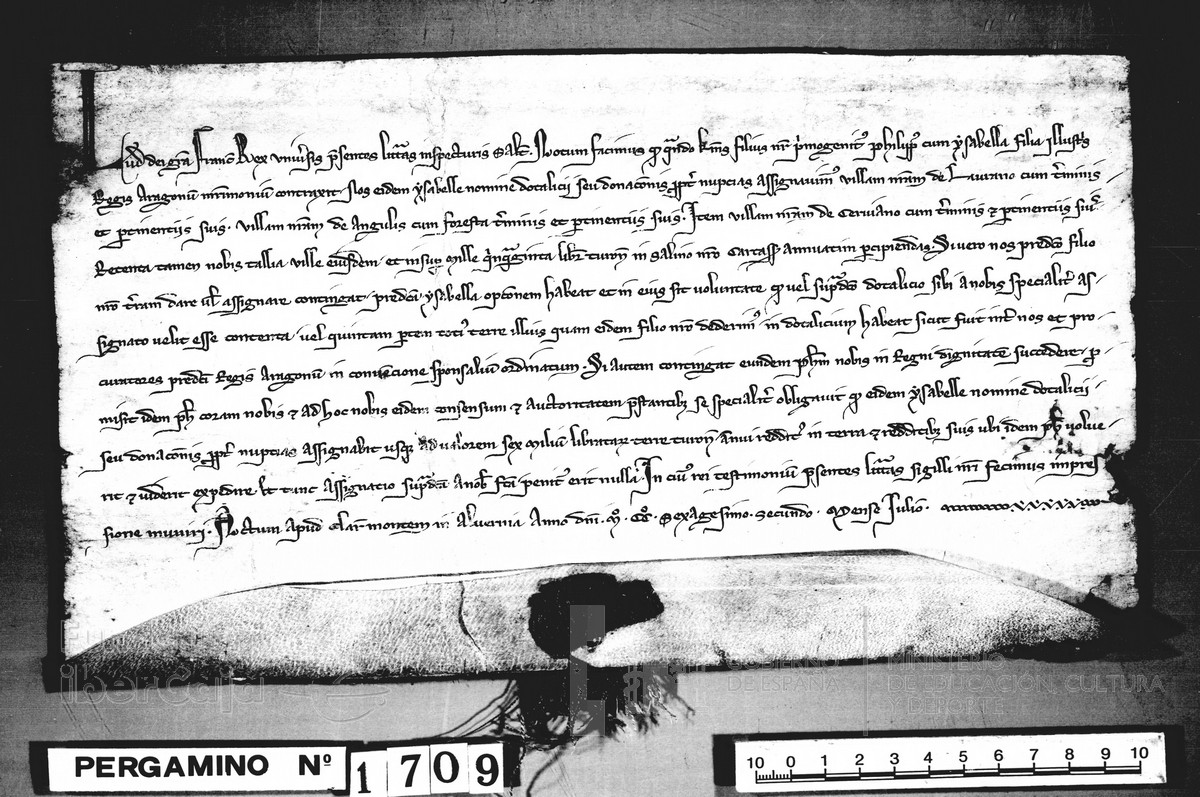 Lud dei gra Franc Rex Universis psentes litteras inspecturis Salt. Notum facimus q qndo kms filius nr primogenit philipp cum ysabella filia illustris
Regis Aragonu mrimoniu contraxit Nos eidem ysabelle nomine dotalicii seu donacois ppt nupcias assignavim villam nram de Laurano cum tminis
et ptinentiis suis. villam nram de Angulis cum foresta tminis et ptinentiis suis. Item villam nram de Cerviano cum tminis & ptinentiis suis
Retenta tamen nobis tallia ville eiusdem. et insup Mille qinqaginta libr turon in salino nro Carcass Annuatim pcipiendas. Si vero nos predco filio
nro tram dare ul assignare contingat. predca ysabella opconem habeat et in eius sit voluntate q vel supdco dotalicio sibi a nobis specialit as-
signato velit esse contenta. vel quintam ptem toti terre illius quam eidem filio nro dederim in dotalicium habeat sicut fuit int nos et pro-
curatores predci Regis Aragonu in convencione sponsaliu ordinatum. Si autem contingat eundem phm nobis in Regni dignitate succedere. p-
misit idem ph coram nobis & ad hoc nobis eidem consensum & auctoritatem pstantibz se specialit obligavit q eidem ysabelle nomine dotalicii
seu donacois ppt nupcias assignabit usqz ad valorem sex miliu librataz terre turon annui reddit in terra & redditibz suis ubi idem ph volue-
rit & viderit expedire. Et tunc Assignatio supdca a nob fca penit erit nulla. In cui rei testimoniu psentes litteras sigilli nri fecimus impres-
sione muniri. Actum apud Clarmontem in Alvernia Anno dni. M. CC. Sexagesimo. secundo. Mense Julio.
PERGAMINO Nº 1709
10 0 1 2 3 4 5 6 7 8 9 10
iberCaja
GOBIERNO DE ESPAÑA
MINISTERIO DE EDUCACIÓN, CULTURA Y DEPORTE